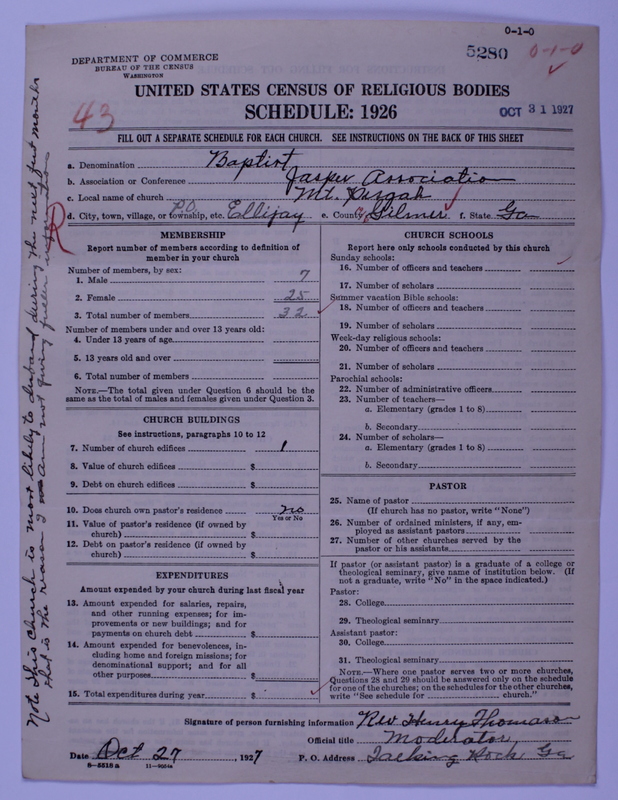 0-1-0
5280 0-1-0
DEPARTMENT OF COMMERCE
BUREAU OF THE CENSUS
WASHINGTON
UNITED STATES CENSUS OF RELIGIOUS BODIES
SCHEDULE: 1926
43
OCT 31 1927
FILL OUT A SEPARATE SCHEDULE FOR EACH CHURCH. SEE INSTRUCTIONS ON THE BACK OF THIS SHEET
a. Denomination Baptist
b. Association or Conference Jasper Association
c. Local name of church Mt. Pizgah
d. City, town, village, or township, etc. P.O. Ellijay e. County Gilmer f. State Ga
R
MEMBERSHIP
Report number of members according to definition of
member in your church
Number of members, by sex:
1. Male 7
2. Female 25
3. Total number of members 32
Number of members under and over 13 years old:
4. Under 13 years of age
5. 13 years old and over
6. Total number of members
NOTE.—The total given under Question 6 should be the
same as the total of males and females given under Question 3.
CHURCH BUILDINGS
See instructions, paragraphs 10 to 12
7. Number of church edifices 1
8. Value of church edifices $
9. Debt on church edifices $
10. Does church own pastor's residence no
Yes or No
11. Value of pastor's residence (if owned by
church) $
12. Debt on pastor's residence (if owned by
church) $
EXPENDITURES
Amount expended by your church during last fiscal year
13. Amount expended for salaries, repairs,
and other running expenses; for im-
provements or new buildings; and for
payments on church debt $
14. Amount expended for benevolences, in-
cluding home and foreign missions; for
denominational support; and for all
other purposes $
15. Total expenditures during year $
CHURCH SCHOOLS
Report here only schools conducted by this church
Sunday schools:
16. Number of officers and teachers
17. Number of scholars
Summer vacation Bible schools:
18. Number of officers and teachers
19. Number of scholars
Week-day religious schools:
20. Number of officers and teachers
21. Number of scholars
Parochial schools:
22. Number of administrative officers
23. Number of teachers—
a. Elementary (grades 1 to 8)
b. Secondary
24. Number of scholars—
a. Elementary (grades 1 to 8)
b. Secondary
PASTOR
25. Name of pastor
(If church has no pastor, write "None")
26. Number of ordained ministers, if any, em-
ployed as assistant pastors
27. Number of other churches served by the
pastor or his assistants
If pastor (or assistant pastor) is a graduate of a college or
theological seminary, give name of institution below. (If
not a graduate, write "No" in the space indicated.)
Pastor:
28. College
29. Theological seminary
Assistant pastor:
30. College
31. Theological seminary
NOTE.—Where one pastor serves two or more churches,
Questions 28 and 29 should be answered only on the schedule
for one of the churches; on the schedules for the other churches,
write "See schedule for church."
Signature of person furnishing information Rev Henry Thomason
Official title Moderator
Date Oct 27, 1927 P. O. Address Talking Rock Ga
8-5518 a 11-9664a
Note this Church is most likely to disband during the next few months
that is the reason I am not giving fuller information